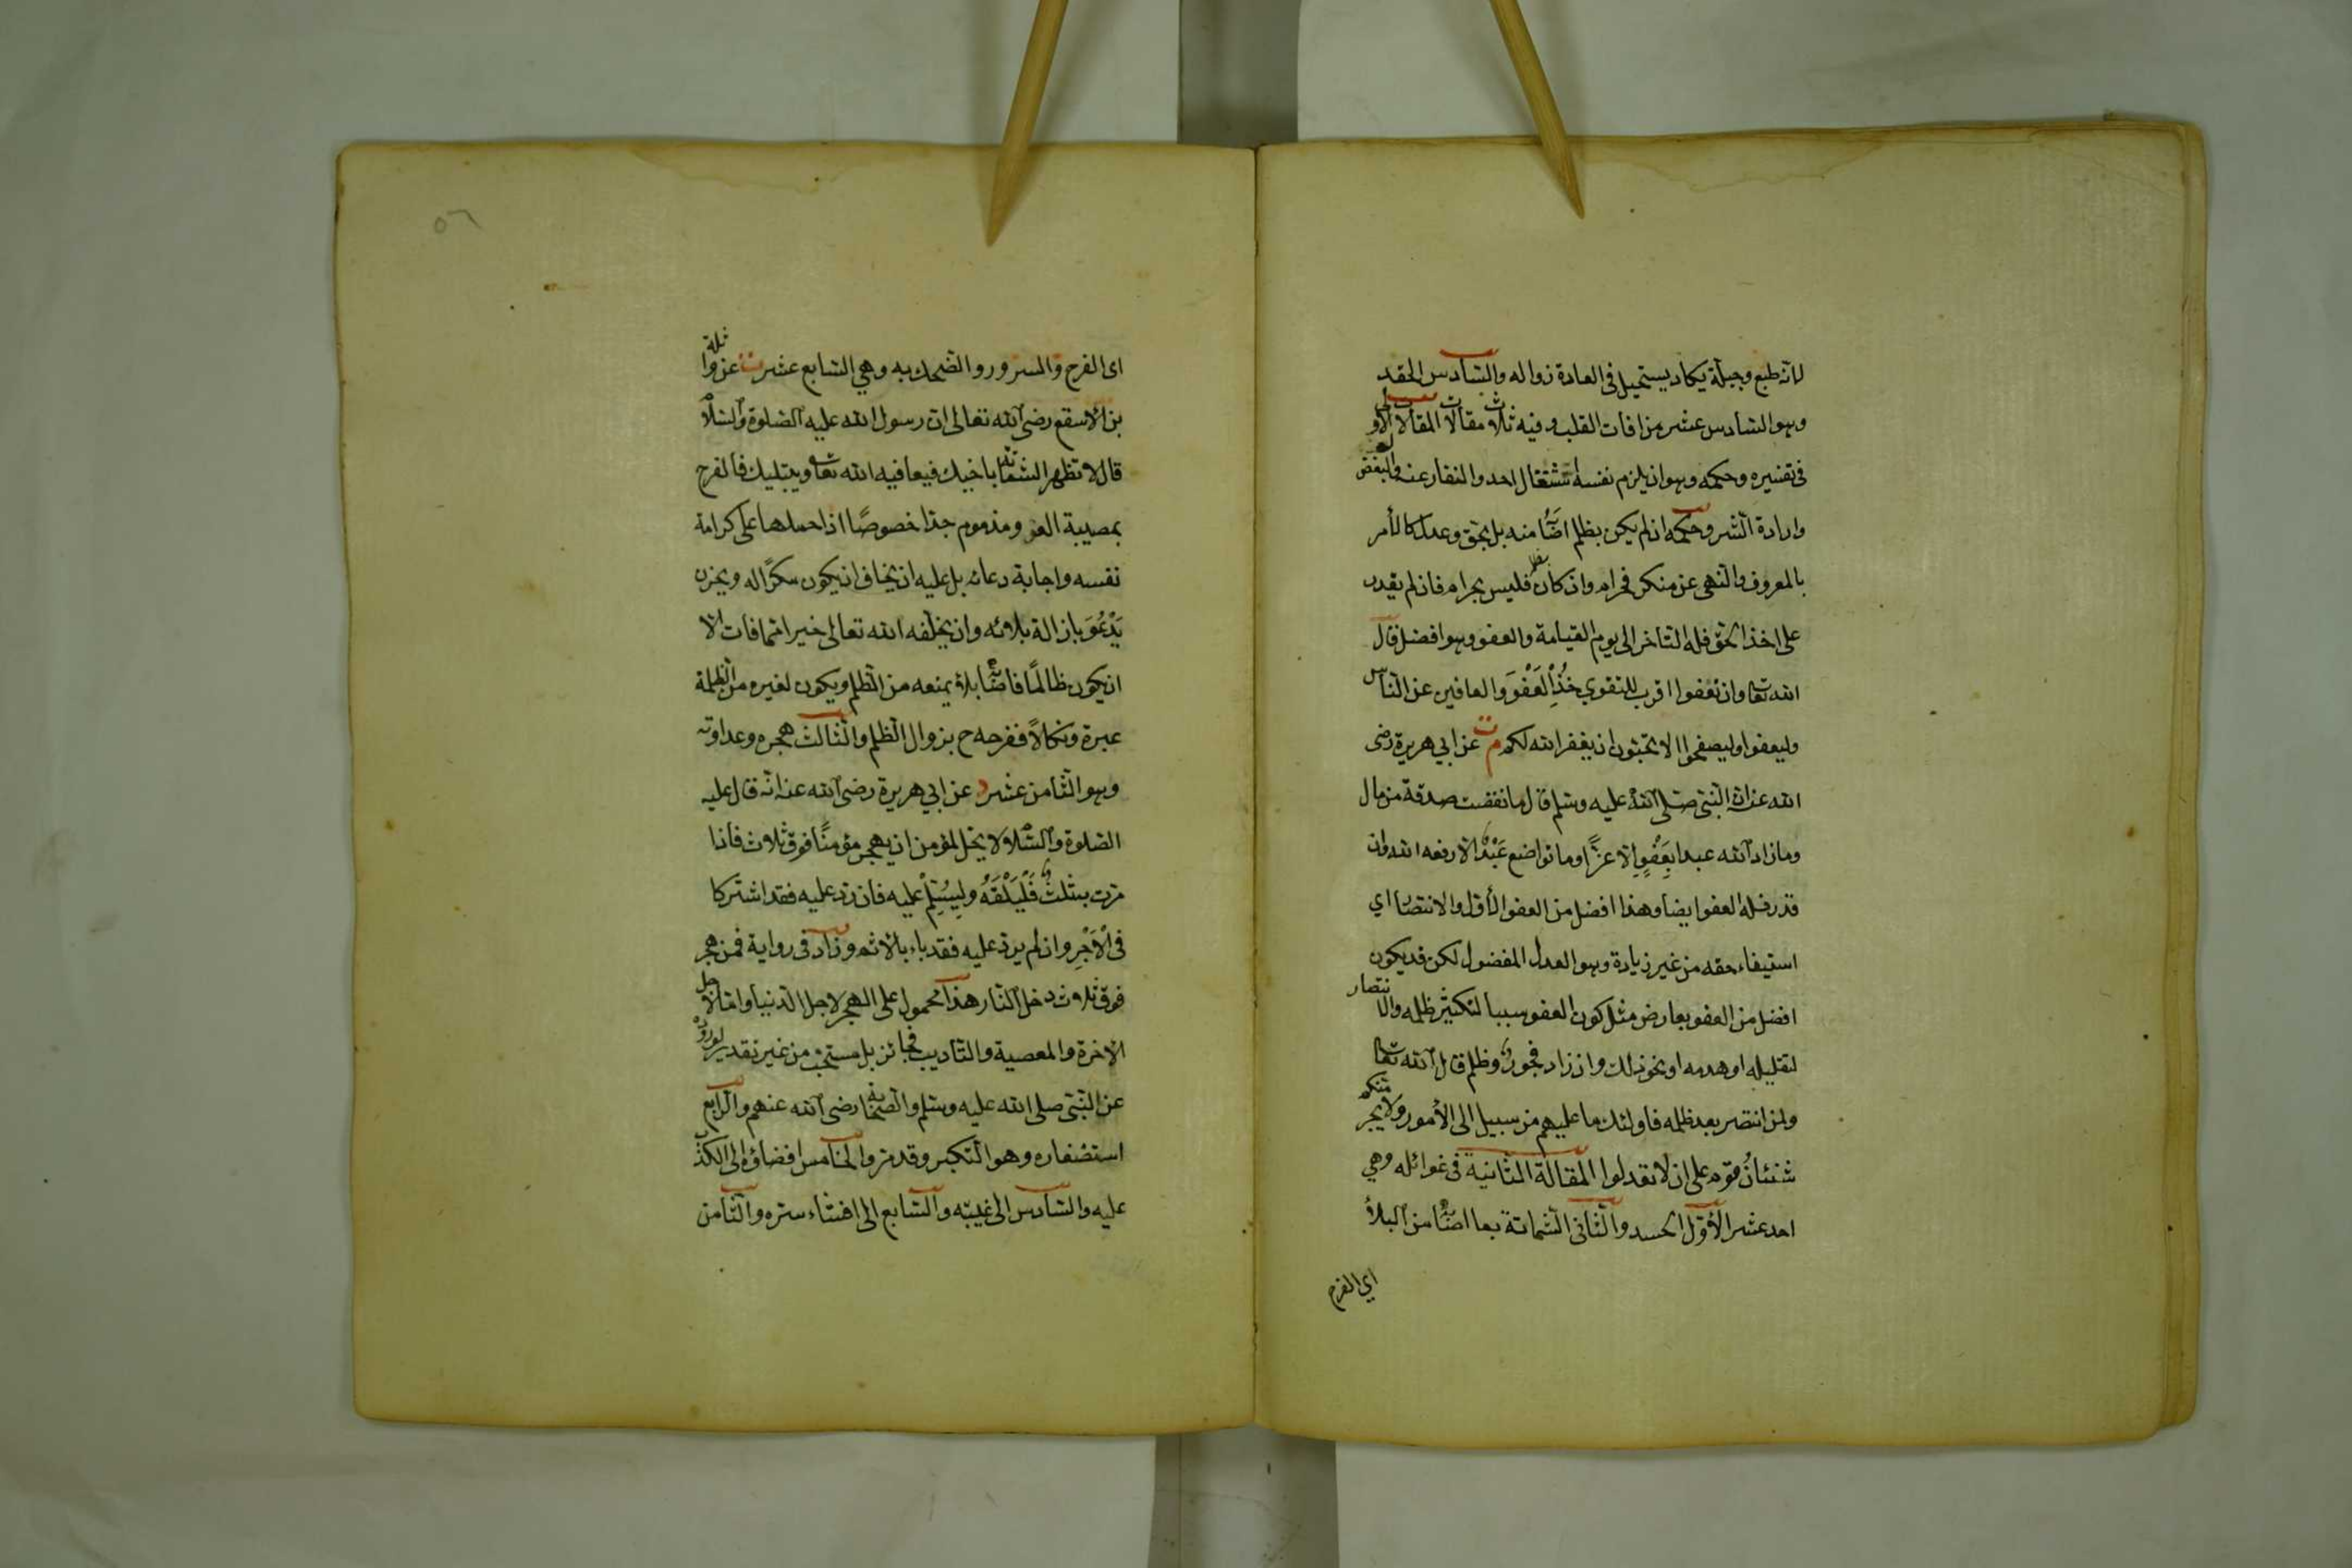 لانه طبع وجبلة يكاد يستحيل في العادة زواله والسادس الحقد
وهو السادس عشر من افات القلب وفيه ثلاث مقالات المقالات الاولى
في تفسيره وحكمه وهو ان يلزم نفسه استثقال احد والنفار عنه والبغض له
وارادة الشر وحكمه ان لم يكن بظلم اصابه منه بل بحق وعدل كالأمر
بالمعروف والنهى عن منكر فحرام وان كان بظلم فليس بحرام فان لم يقدر
على اخذ الحق فله التاخر الى يوم القيامة والعفو وهو افضل قال
الله تعالى وان تعفوا اقرب للتقوي خُذِ الْعَفْوَ والعافين عن الناس
وليعفوا وليصفحوا الا تحبون ان يغفر الله لكم م ت عن ابي هريرة رضى
الله عنه ان النبي صلى الله عليه وسلم قال ما نقصت صدقة من مال
وما زاد الله عبدا بِعَفْوٍ الا عزًّا وما تواضع عَبْدٌ الا رفعه الله وان
قدر فله العفو ايضا وهذا افضل من العفو الأول والانتصار اي
استيفاء حقه من غير زيادة وهو العدل المفضول لكن قد يكون
افضل من العفو بعارض مثل كون العفو سببا لتكثير ظلمه والانتصار
لتقليله او هدمه او نحو ذلك وان زاد فجور وظلم قال الله تعالى
ولمن انتصر بعد ظلمه فاولئك ما عليهم من سبيل الى الأمور ولا يجرمنكم
شنئانُ قوم على ان لا تعدلوا المقالة الثانية في غوائله وهي
احد عشر الأوّل الحسد والثانى الشماتة بما اصابه من البلاء
اي الفرح
٥٦
اى الفرح والسرور والضحك به وهي السابع عشر ت عن واثلة
بن الاسقع رضى الله تعالى ان رسول الله عليه الصلوة والسلام
قال لا تظهر الشماتة باخيك فيعافيه الله تعالى ويبتليك فالفرح
بمصيبة العدو مذموم جدا خصوصًا اذا حملها على كرامة
نفسه واجابة دعائه بل عليه ان يخاف ان يكون مكرًا له ويحزن
يَدْعُوَ بازالة بلائه وان يخلفه الله تعالى خيرا مما فات الا
ان يكون ظالمًا فاصابه بلاء يمنعه من الظلم ويكون لغيره من الظلمة
عبرة ونكالاً ففرحه ح بزوال الظلم والثالث هجره وعداوته
وهو الثامن عشر د عن ابي هريرة رضى الله عنه انه قال عليه
الصلوة والسلام لا يحل لمؤمن ان يهجر مؤمنًا فوق ثلاث فاذا
مرت به ثلث فَلْيَلْقَهُ وليُسَلِّمْ عليه فان رد عليه فقد اشتركا
في الْاَجْرِ وان لم يرد عليه فقد باء بالاثم وزاد في رواية فمن هجر
فوق ثلاث دخل النار هذا محمول على الهجر لاجل الدنيا واما لاجل
الاخرة والمعصية والتاديب فجائز بل مستحب من غير تقدير لوروده
عن النبي صلى الله عليه وسلم والصحابة رضى الله عنهم والرابع
استصغاره وهو التكبر وقد مر والخامس افضاؤه الى الكذب
عليه والسادس الى غيبته والسابع الى افشاء سره والثامن